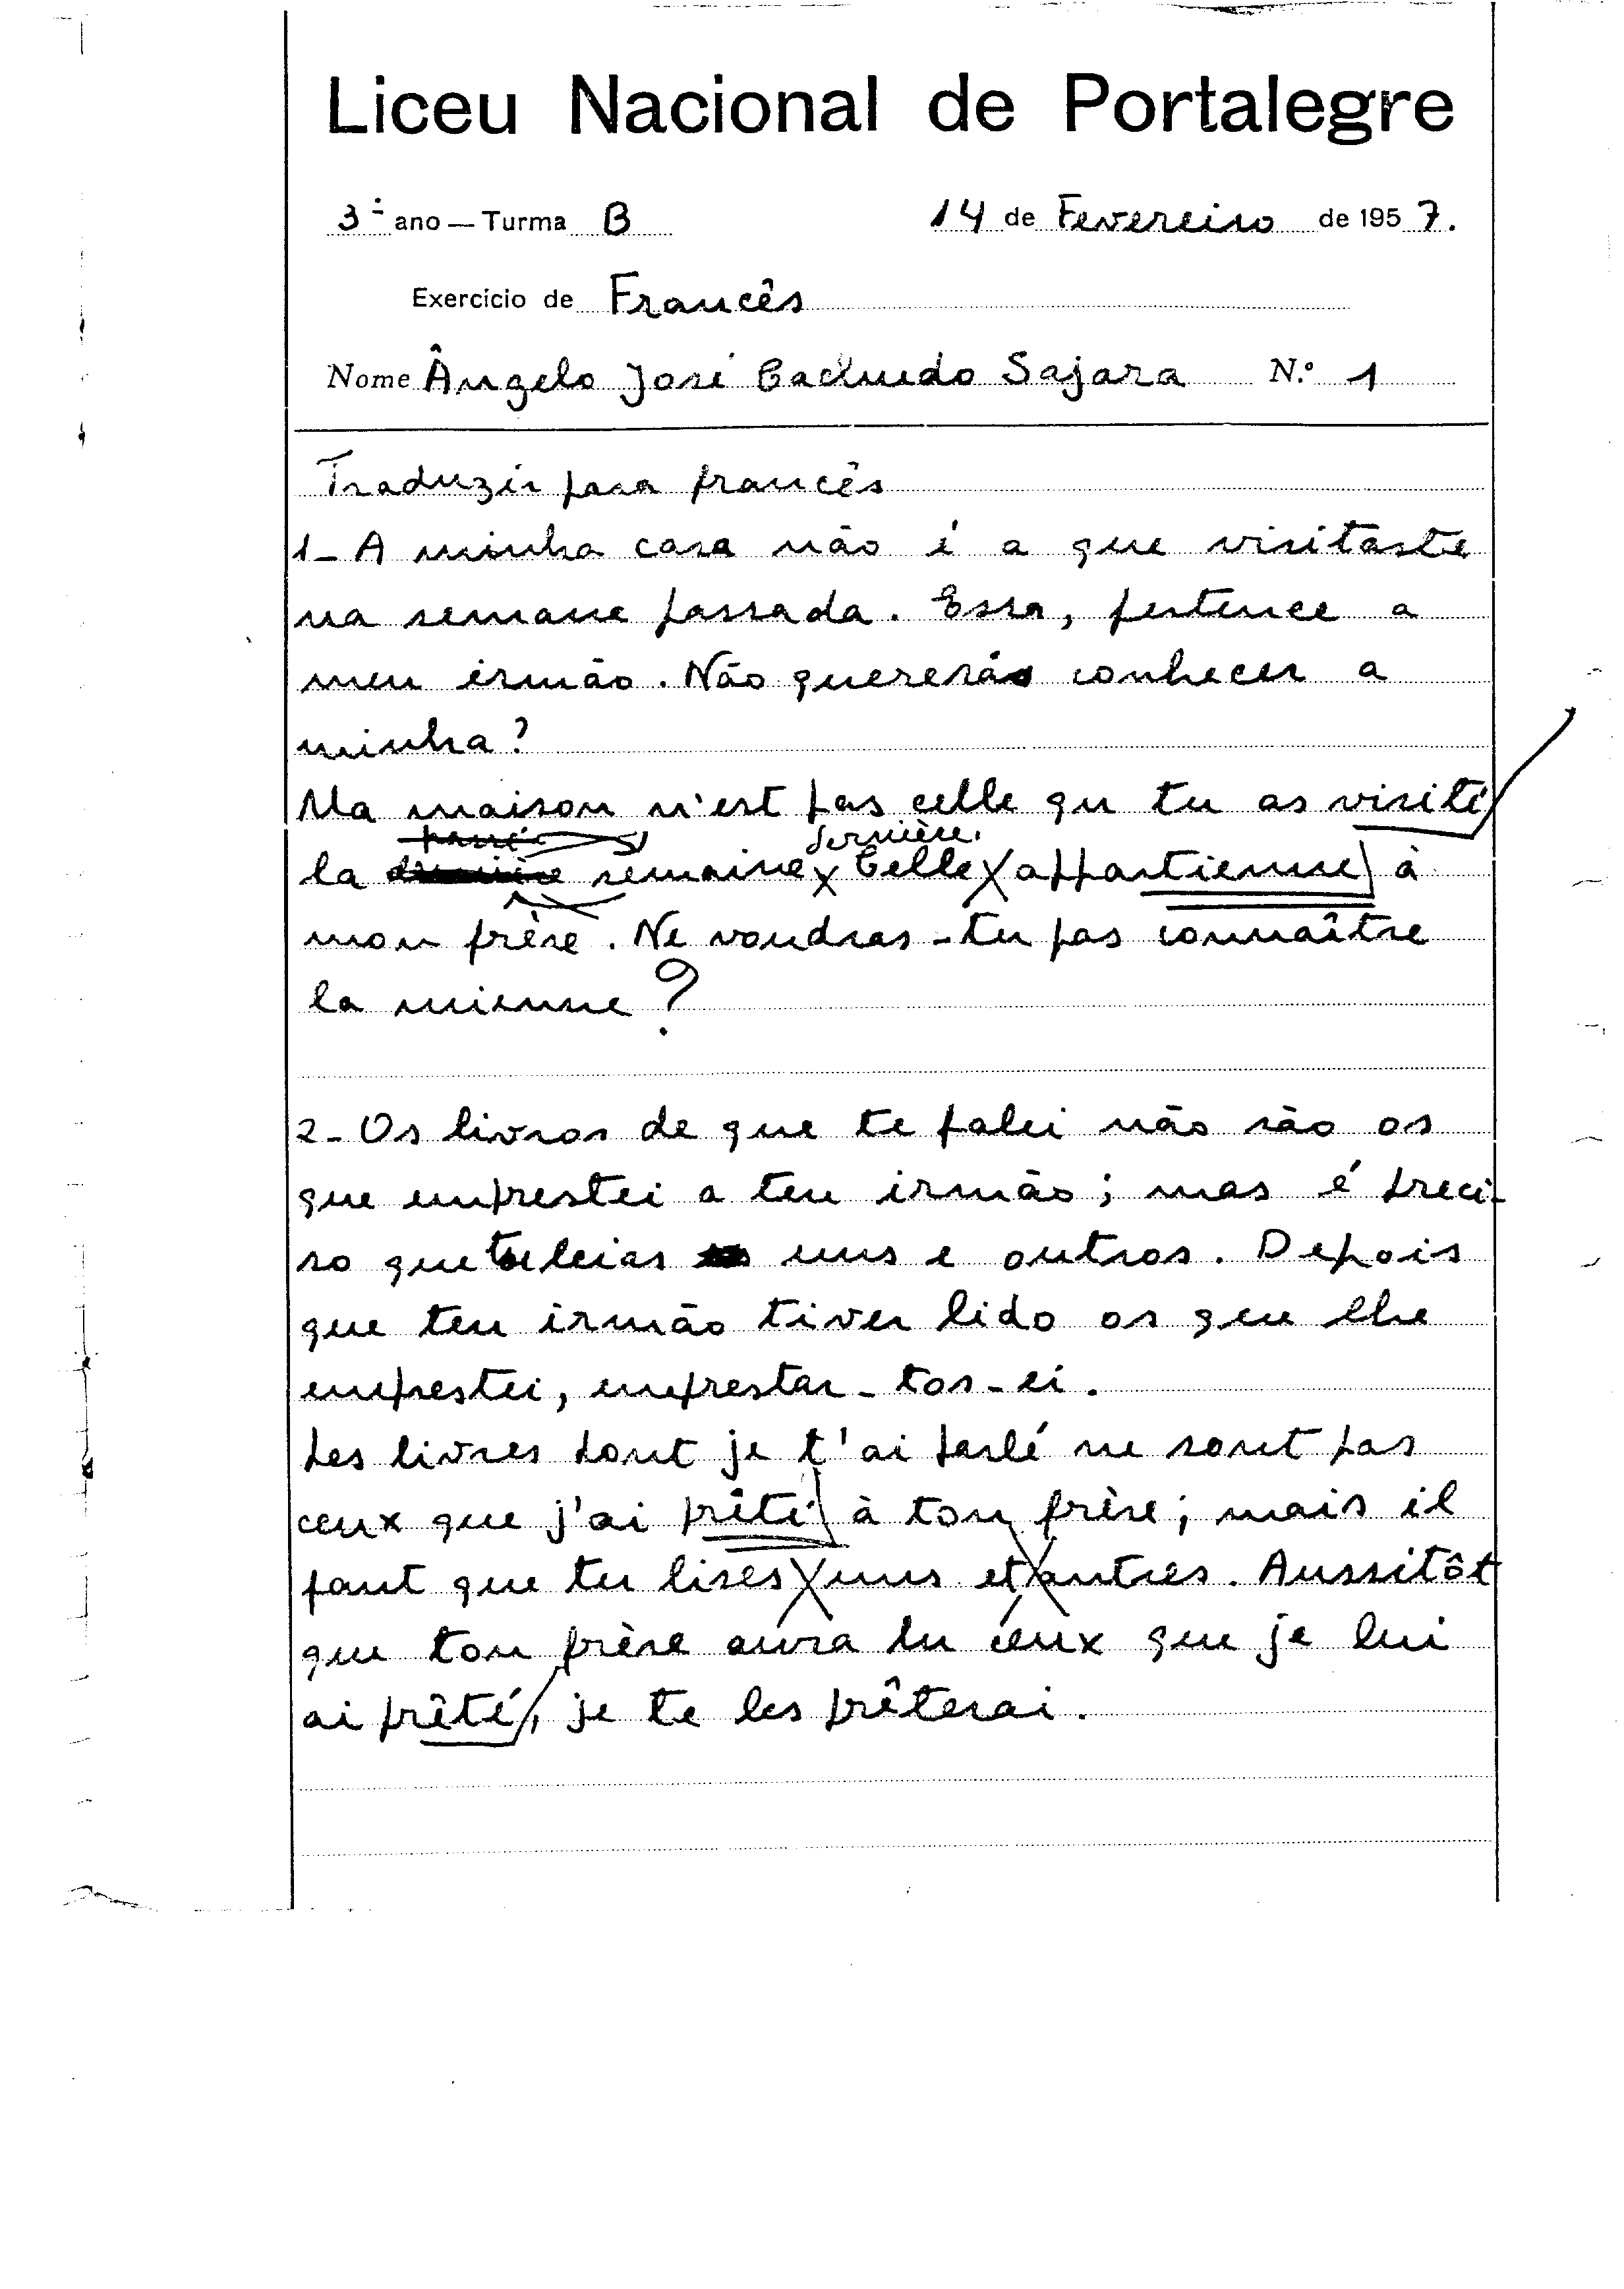 Liceu Nacional de Portalegre
3º ano — Turma B 14 de Fevereiro de 1957.
Exercício de Francês
Nome Ângelo José Sajara N.º 1
Traduzir para francês
1- A minha casa não é a que visitaste
na semana passada. Essa, pertence a
meu irmão. Não quererás conhecer a
minha?
Ma maison n'est pas celle qu tu as visité
dernière.
la semaine Celle appartienne à
mon frère. Ne voudras-tu pas connaître
la mienne?
2- Os livros de que te falei não são os
que emprestei a teu irmão; mas é preci-
so que tu leias uns e outros. Depois
que teu irmão tiver lido os que lhe
emprestei, emprestar-tos-ei.
Les livres dont je t'ai parlé ne sont pas
ceux que j'ai prêté à ton frère; mais il
faut que tu lises uns et autres. Aussitôt
que ton frère aura lu ceux que je lui
ai prêté, je te les prêterai.